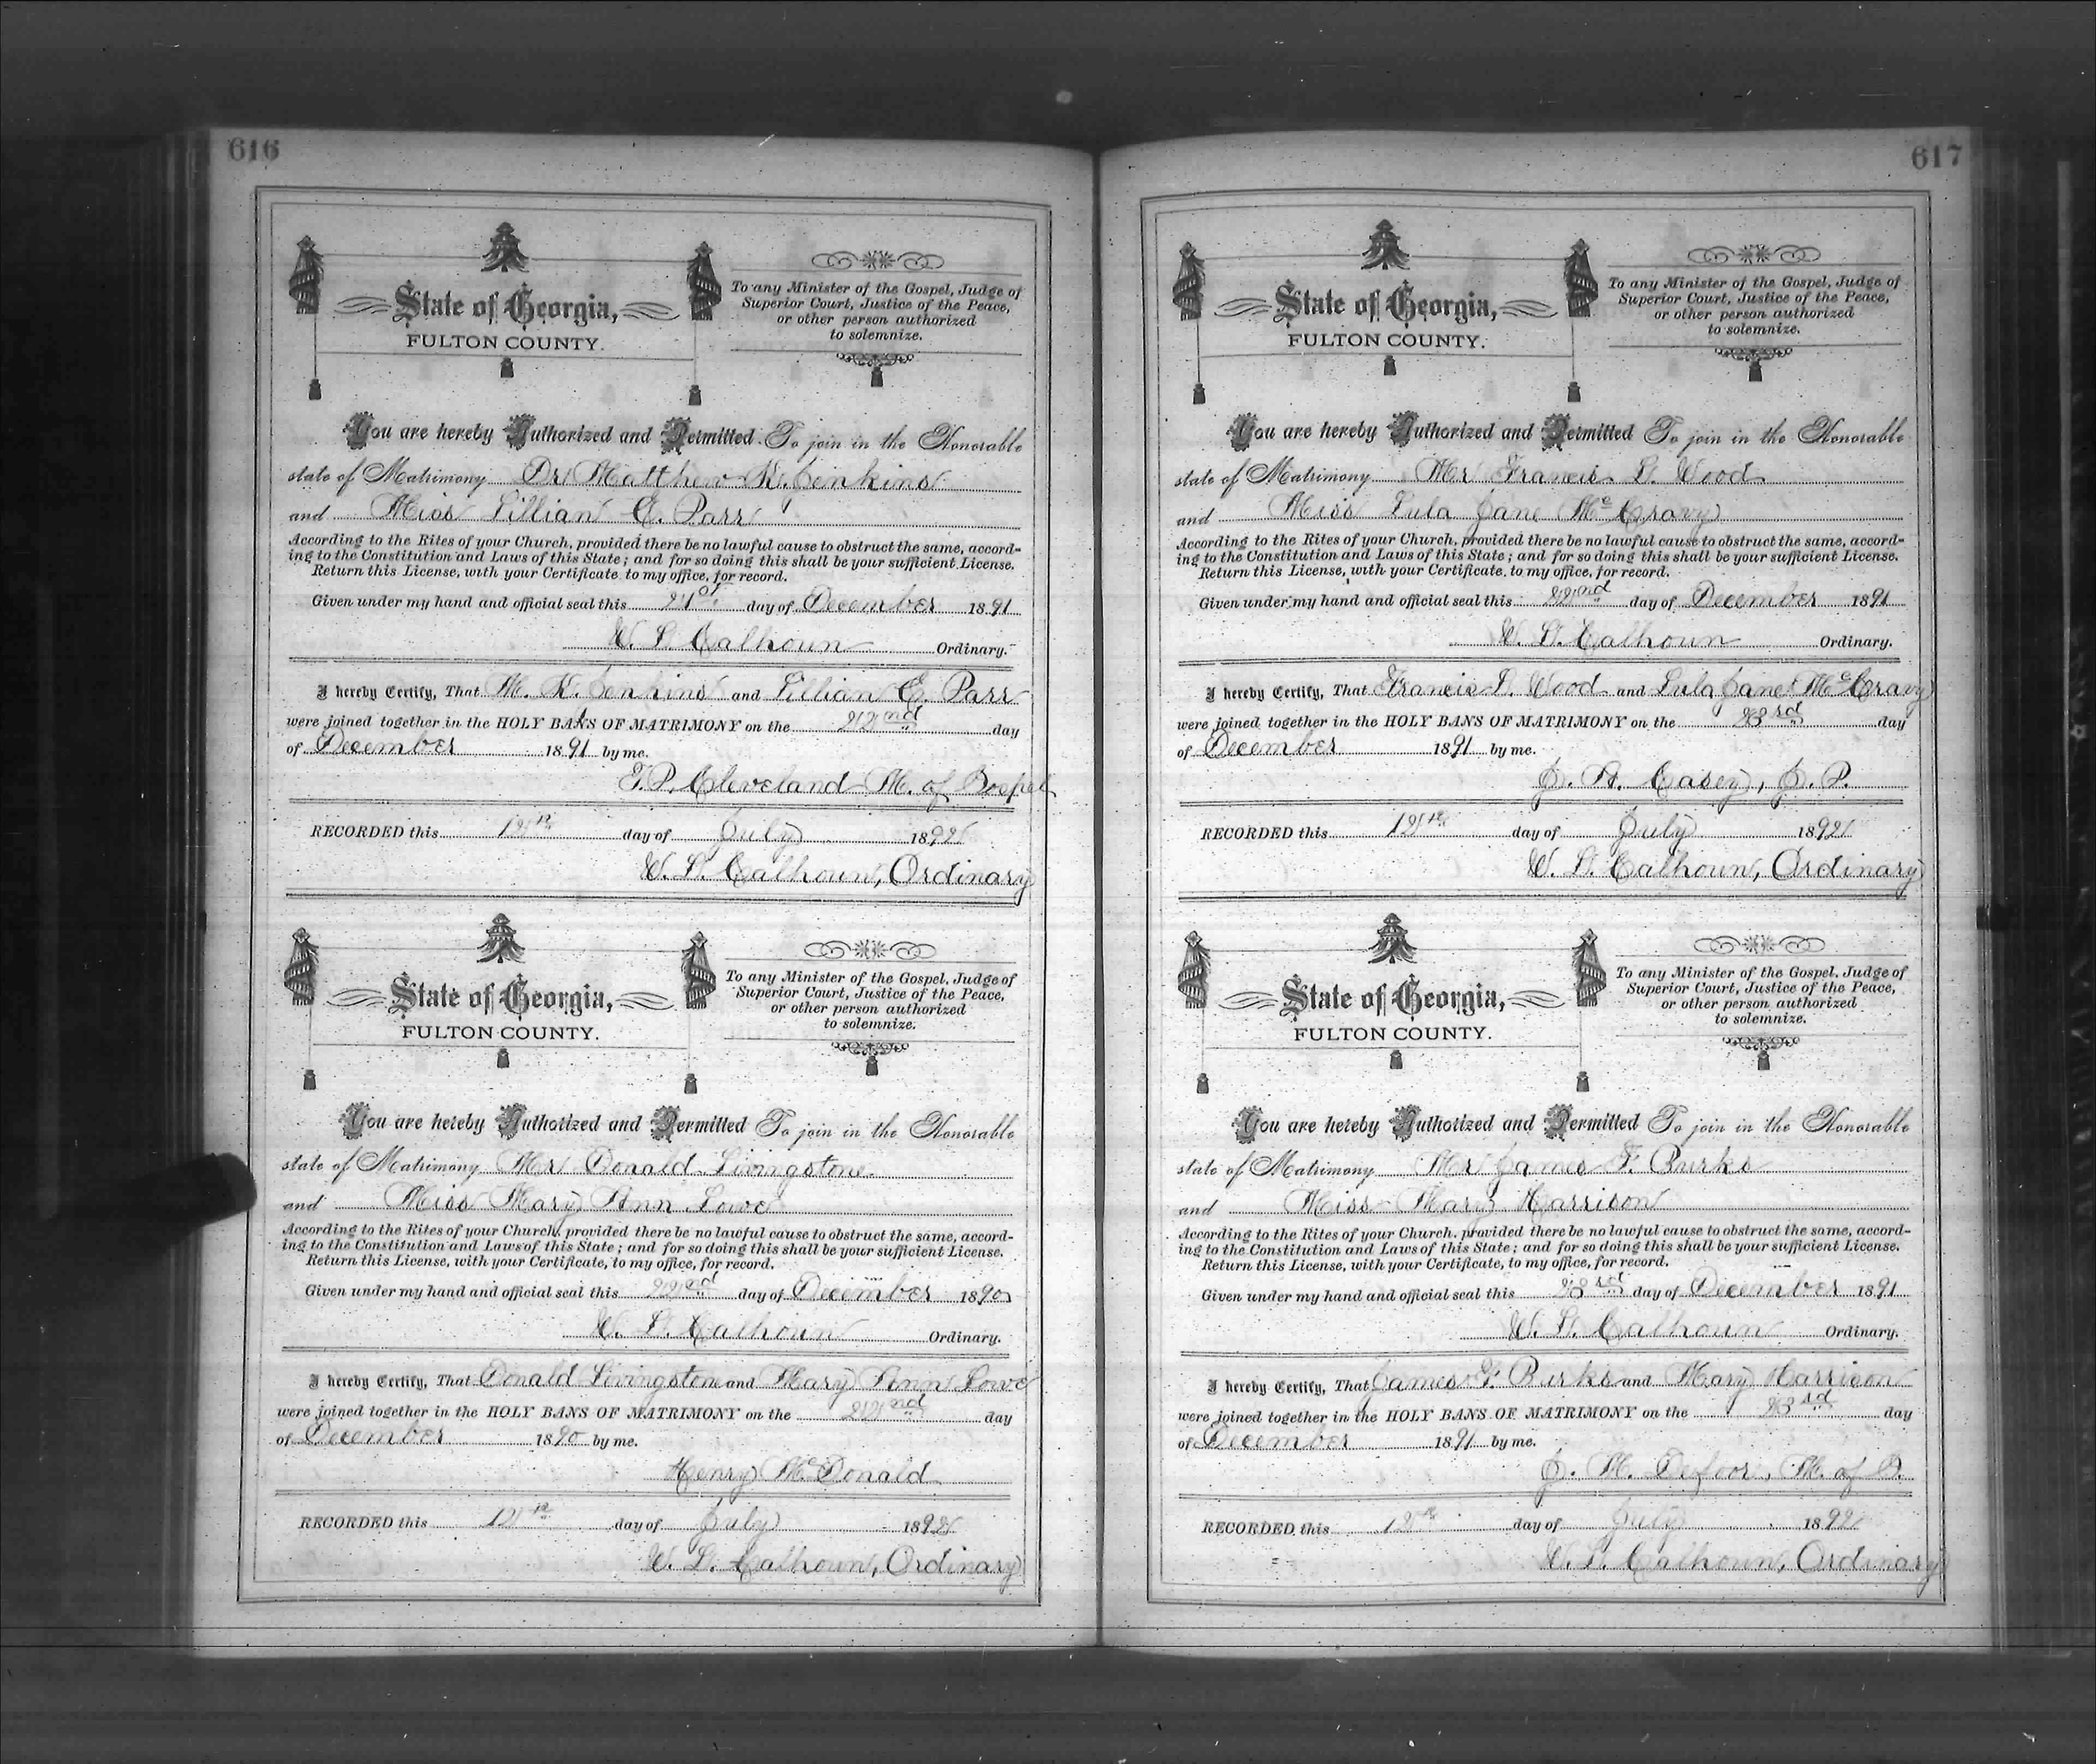 616
State of Georgia,
FULTON COUNTY.
To any Minister of the Gospel, Judge of
Superior Court, Justice of the Peace,
or other person authorized
to solemnize.
You are hereby Authorized and Permitted To join in the Honorable
state of Matrimony Dr Matthew K. Jenkins
and Miss Lillian E. Parr
According to the Rites of your Church, provided there be no lawful cause to obstruct the same, accord-
ing to the Constitution and Laws of this State; and for so doing this shall be your sufficient License.
Return this License, with your Certificate, to my office, for record.
Given under my hand and official seal this 21st day of December 1891
W. L. Calhoun Ordinary.
I hereby Certify, That M. K. Jenkins and Lillian E. Parr
were joined together in the HOLY BANS OF MATRIMONY on the 22nd day
of December 1891 by me.
T. P. Cleveland M. of Gospel
RECORDED this 12th day of July 1892
W. L. Calhoun, Ordinary
State of Georgia,
FULTON COUNTY.
To any Minister of the Gospel, Judge of
Superior Court, Justice of the Peace,
or other person authorized
to solemnize.
You are hereby Authorized and Permitted To join in the Honorable
state of Matrimony Mr Donald Livingstone
and Miss Mary Ann Lowe
According to the Rites of your Church, provided there be no lawful cause to obstruct the same, accord-
ing to the Constitution and Laws of this State; and for so doing this shall be your sufficient License.
Return this License, with your Certificate, to my office, for record.
Given under my hand and official seal this 22nd day of December 1890
W. L. Calhoun Ordinary.
I hereby Certify, That Donald Livingstone and Mary Ann Lowe
were joined together in the HOLY BANS OF MATRIMONY on the 22nd day
of December 1890 by me.
Henry McDonald
RECORDED this 12th day of July 1892
W. L. Calhoun, Ordinary
617
State of Georgia,
FULTON COUNTY.
To any Minister of the Gospel, Judge of
Superior Court, Justice of the Peace,
or other person authorized
to solemnize.
You are hereby Authorized and Permitted To join in the Honorable
state of Matrimony Mr Francis L. Wood
and Miss Lula Jane McCravy
According to the Rites of your Church, provided there be no lawful cause to obstruct the same, accord-
ing to the Constitution and Laws of this State; and for so doing this shall be your sufficient License.
Return this License, with your Certificate, to my office, for record.
Given under my hand and official seal this 22nd day of December 1891
W. L. Calhoun Ordinary.
I hereby Certify, That Francis L. Wood and Lula Jane McCravy
were joined together in the HOLY BANS OF MATRIMONY on the 23rd day
of December 1891 by me.
J. A. Casey, J. P.
RECORDED this 12th day of July 1892
W. L. Calhoun, Ordinary
State of Georgia,
FULTON COUNTY.
To any Minister of the Gospel, Judge of
Superior Court, Justice of the Peace,
or other person authorized
to solemnize.
You are hereby Authorized and Permitted To join in the Honorable
state of Matrimony Mr James F. Burks
and Miss Mary Harrison
According to the Rites of your Church, provided there be no lawful cause to obstruct the same, accord-
ing to the Constitution and Laws of this State; and for so doing this shall be your sufficient License.
Return this License, with your Certificate, to my office, for record.
Given under my hand and official seal this 23rd day of December 1891
W. L. Calhoun Ordinary.
I hereby Certify, That James F. Burks and Mary Harrison
were joined together in the HOLY BANS OF MATRIMONY on the 23rd day
of December 1891 by me.
J. M. Defoor, M. of G.
RECORDED this 12th day of July 1892
W. L. Calhoun, Ordinary